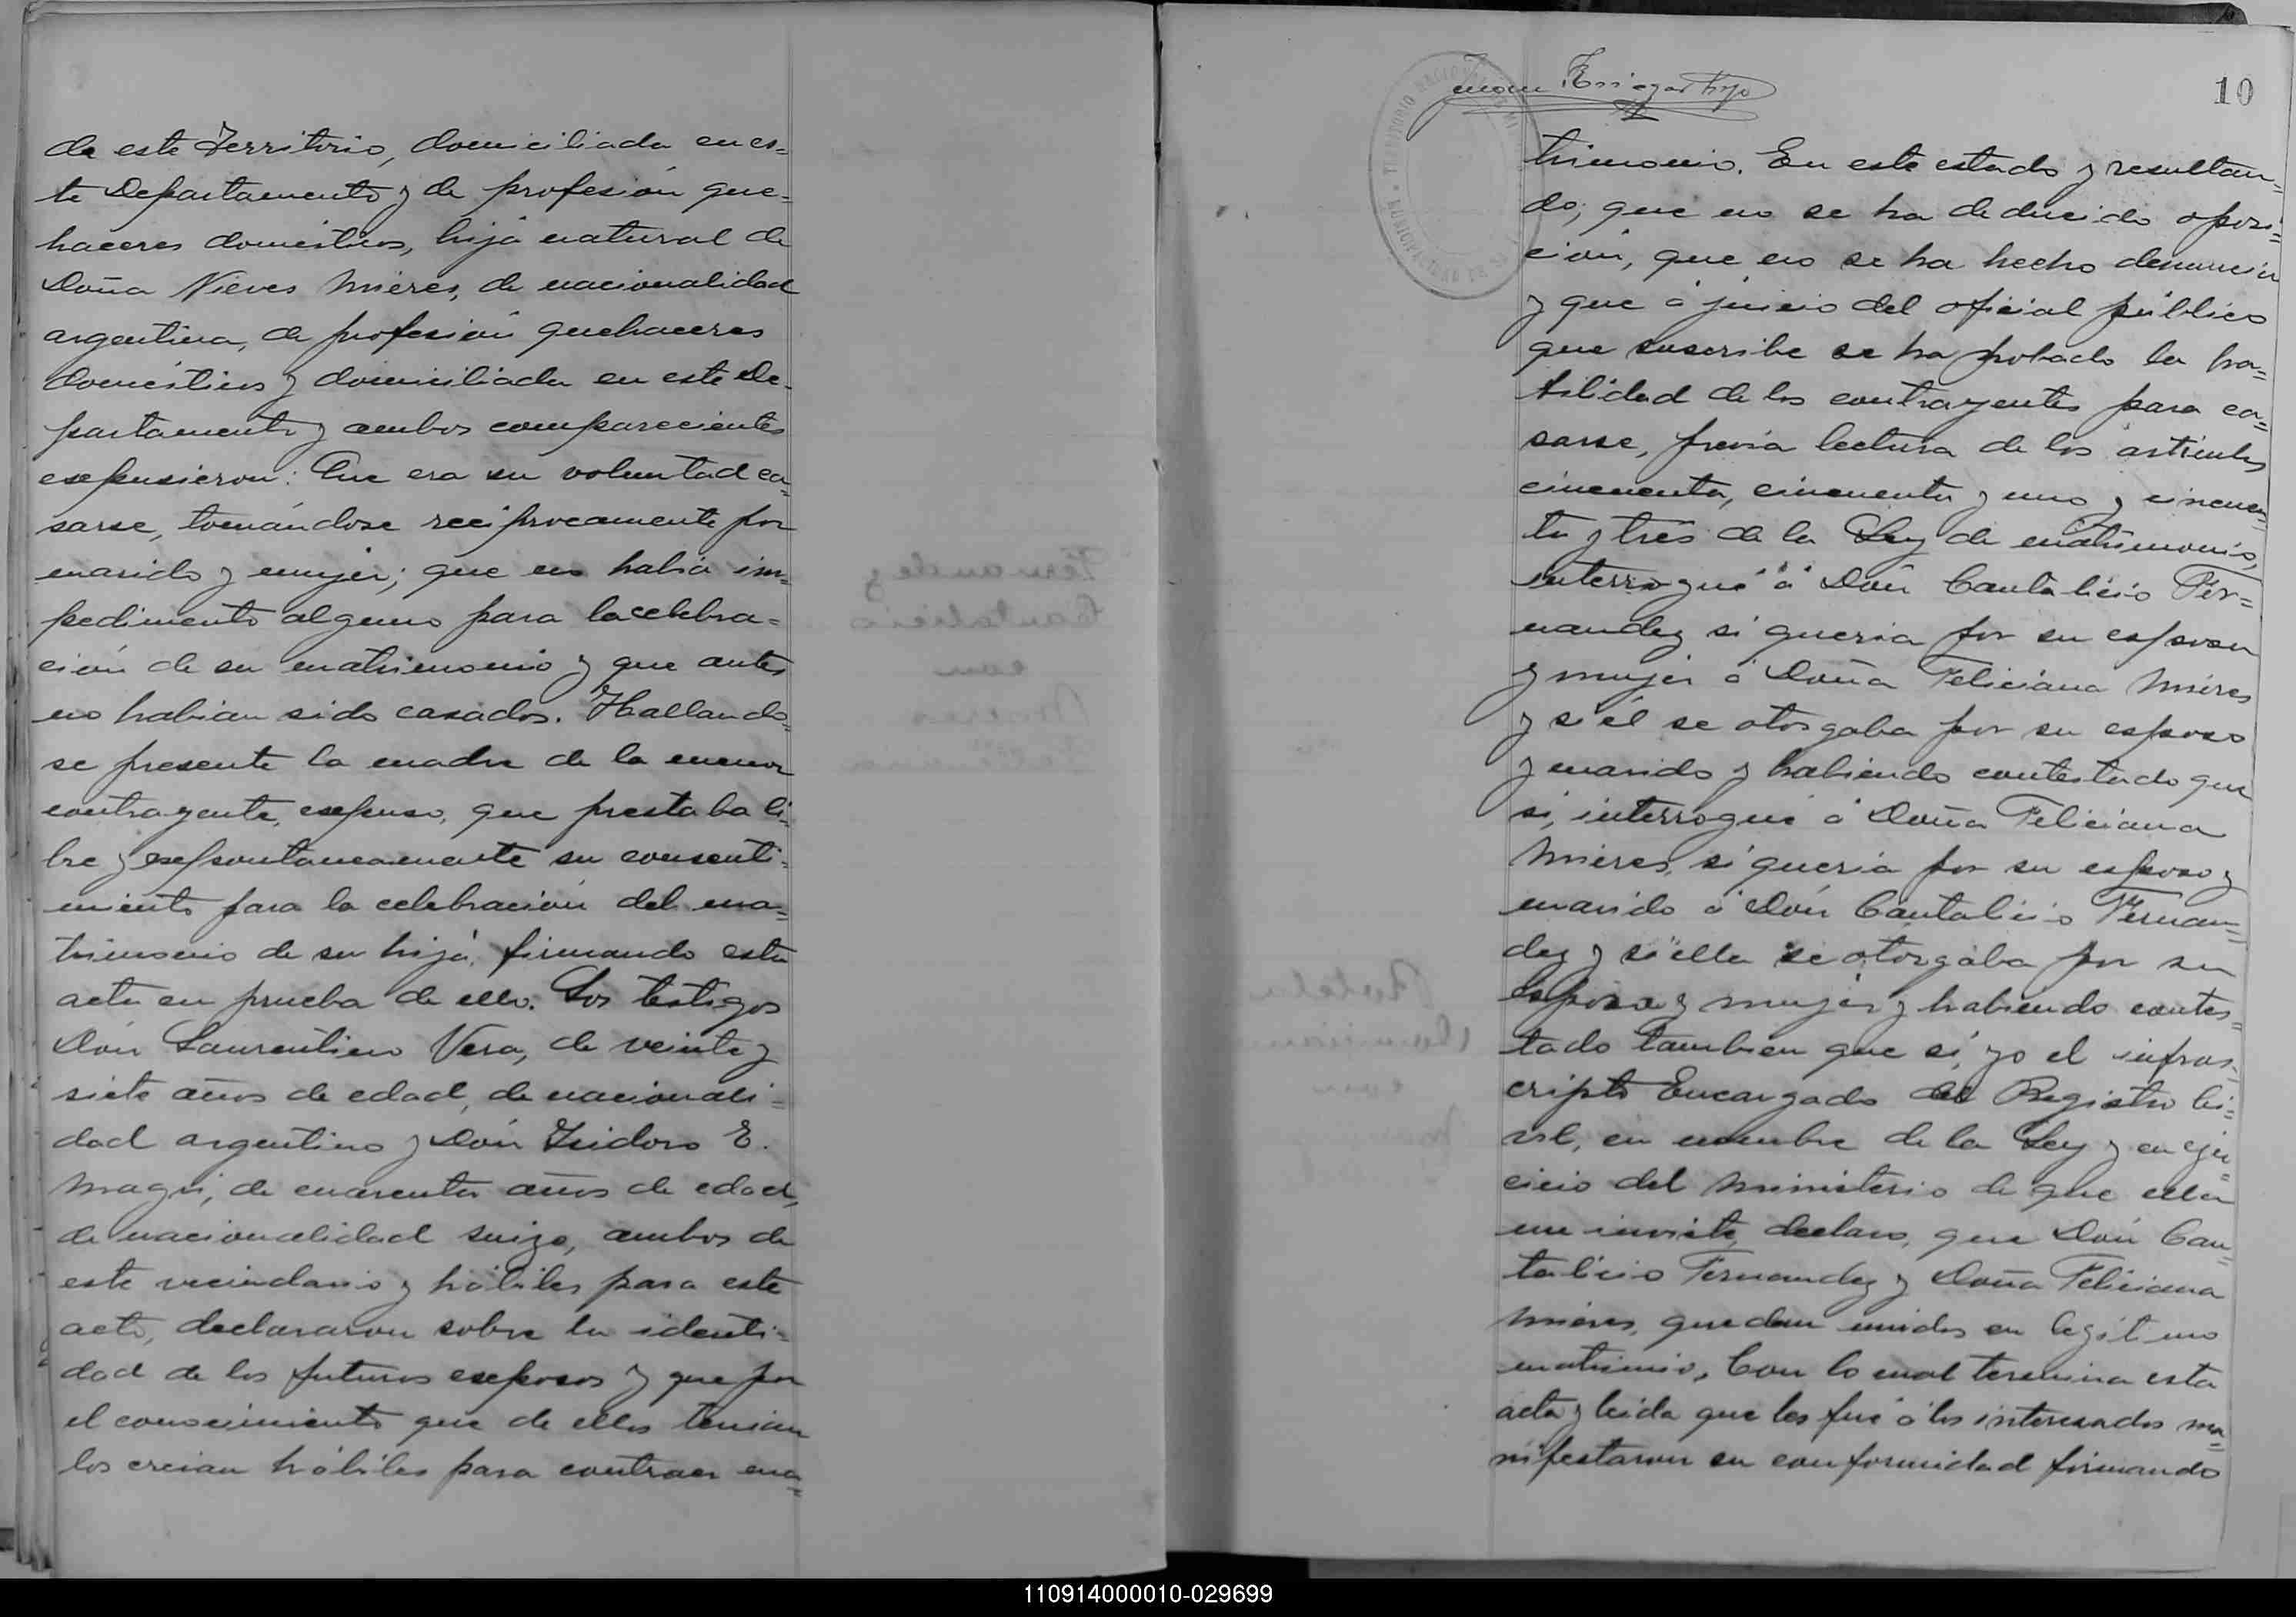 de este Territorio, domiciliada en es=
te Departamento y de profesión que=
haceres domésticos, hija natural de
Doña Nieves Mieres, de nacionalidad
argentina, de profesión quehaceres
domésticos y domiciliada en este De-
partamento y ambos comparecientes
expusieron: Que era su voluntad ca=
sarse, tomándose recíprocamente por
marido y mujer; que no habia im=
pedimento alguno para la celebra=
ción de su matrimonio y que antes
no habian sido casados. Hallando=
se presente la madre de la menor
contrayente, expuso, que prestaba li=
bre y espontaneamente su consenti=
miento para la celebración del ma=
trimonio de su hija, firmando esta
acta en prueba de ello. Los testigos
Dón Laurentino Vera, de veinte y
siete años de edad, de nacionali=
dad argentino y Dón Isidoro E.
Magri, de cuarenta años de edad,
de nacionalidad suizo, ambos de
este vecindario y hábiles para este
acto, declararon sobre la identi=
dad de los futuros esposos y que por
el conocimiento que de ellos tenian
los creian hábiles para contraer ma=
10
trimonio. En este estado y resultan=
do; que no se ha deducido oposi=
ción, que no se ha hecho denuncia
y que á juicio del oficial público
que suscribe se ha probado la ha=
bilidad de los contrayentes para ca=
sarse, previa lectura de los artículos
cincuenta, cincuenta y uno y cincuen=
ta y tres de la Ley de matrimonio,
interrogué á Dón Cantalicio Fer=
nandez si queria por su esposa
y mujer á Doña Feliciana Mieres
y si él se otorgaba por su esposo
y marido y habiendo contestado que
si, interrogué á Doña Feliciana
Mieres, si queria por su esposo y
marido á Dón Cantalicio Fernan=
dez y si ella se otorgaba por su
esposa y mujer y habiendo contes=
tado tambien que si, yo el infras=
cripto Encargado del Registro Ci=
vil, en nombre de la Ley y en eje=
cicio del ministerio de que ella
me inviste, declaro, que Dón Can=
talicio Fernandez y Doña Feliciana
Mieres, quedan unidos en legítimo
matrimio. Con lo cual termina esta
acta y leida que les fué á los interesados ma=
nifestaron su conformidad firmando
110914000010-029699